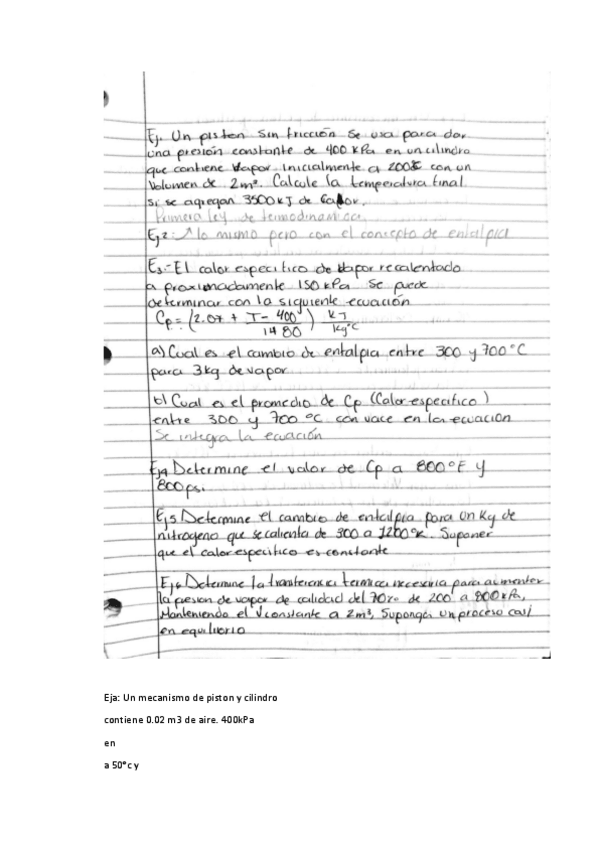 Ej. Un piston sin fricción se usa para dar
una presión constante de 400 kPa en un cilindro
que contiene vapor inicialmente a 200°C con un
Volumen de 2m³. Calcule la temperatura final
si se agregan 3500 kJ de Calor.
Primera ley de termodinamica
Ej 2: lo mismo pero con el concepto de entalpia
E3.- El calor especifico de vapor recalentado
a proximadamente 150 kPa se puede
determinar con la siguiente ecuación
Cp = (2.07 + T - 400 / 1480) kJ / kg°C
a) Cual es el cambio de entalpia entre 300 y 700°C
para 3kg de vapor
b) Cual es el promedio de Cp (Calor especifico)
entre 300 y 700 °C con vace en la ecuacion
Se integra la ecuación
Ej4 Determine el valor de Cp a 800°F y
800 psi
Ej5 Determine el cambio de entalpia para un Kg de
nitrogeno que se calienta de 300 a 1200°K. Suponer
que el calor especifico es constante
Ej6 Determine la transferencia termica necesaria para aumentar
la presion de vapor de calidad del 70% de 200 a 800 kPa,
Manteniendo el V constante a 2m³, Suponga un proceso casi
en equilibrio
Eja: Un mecanismo de piston y cilindro
contiene 0.02 m3 de aire. 400kPa
en
a 50°c y